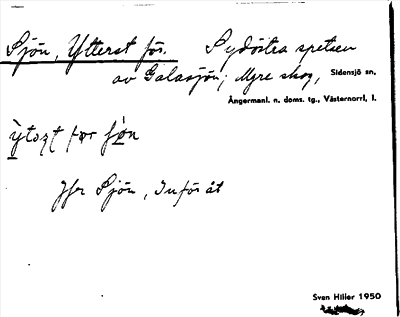 Sjön, Ytterst för. Sydöstra spetsen
av Galasjön; Myre skog, Sidensjö sn,
Ångermanl. n. doms. tg., Västernorrl. l.
Jfr Sjön, Inför åt
Sven Hiller 1950